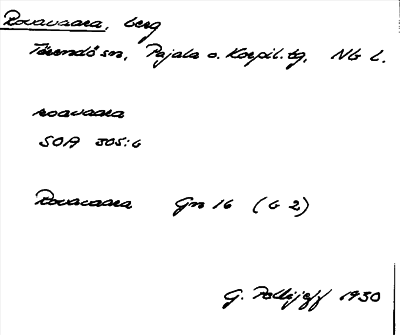 Rovavaara, berg
Tärendö sn, Pajala o. Korpil. tg, Nb L.
roavaara
SOA 305:6
Rovavaara Gn 16 (G 2)
G. 1930